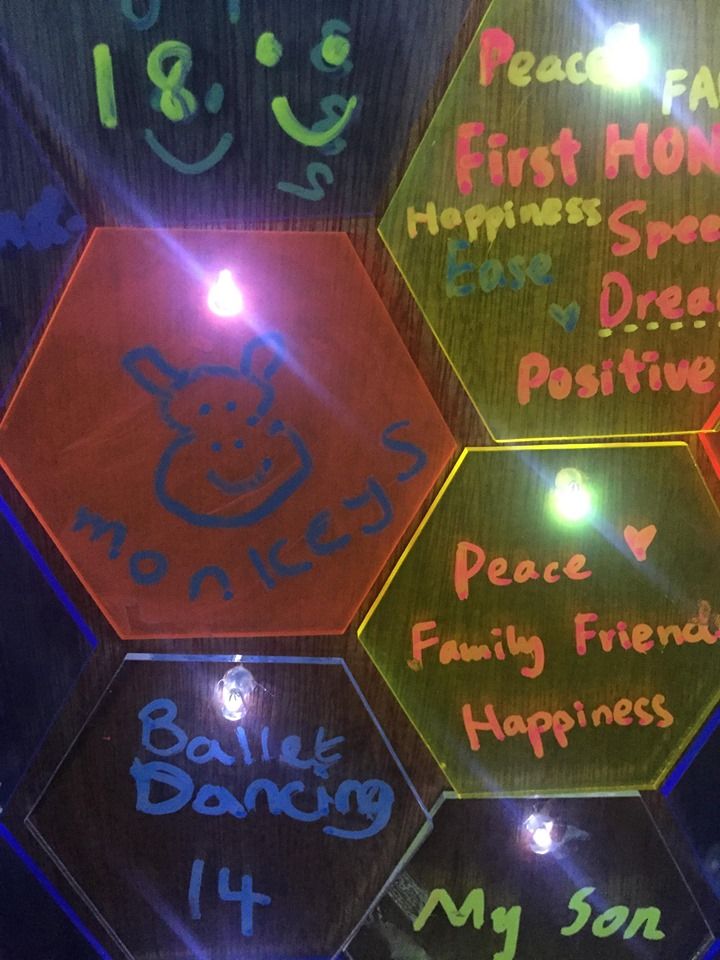 18
Peace
FA
First HON
Happiness
Spee
Ease
Drea
Positive
monkeys
Peace
Family Friends
Happiness
Ballet
Dancing
14
My Son